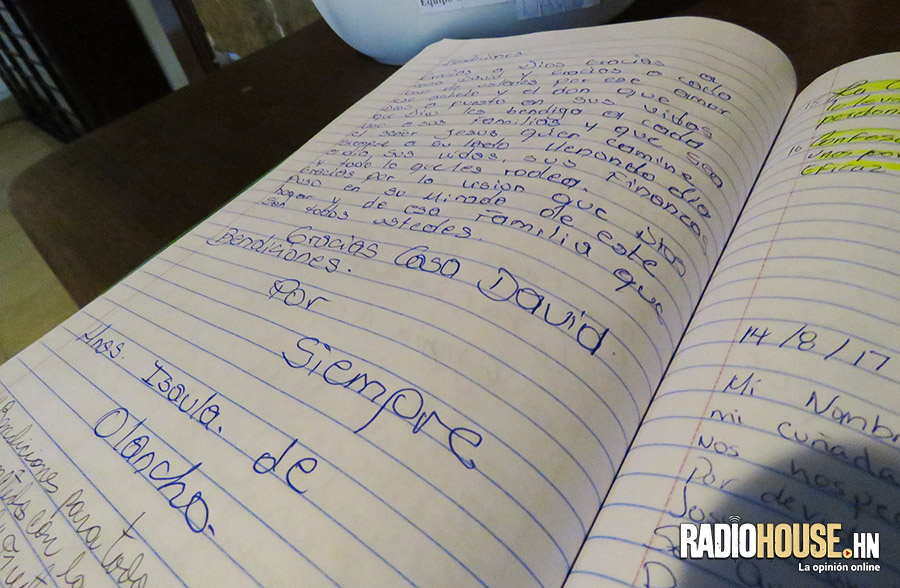 Bendiciones.
Gracias a Dios Gracias a
Casa David y Gracias a cada
uno de ustedes por ese amor
ese anhelo y el don que
Dios a puesto en sus vidas
que Dios les bendiga a cada
uno a sus familias y que sea
el señor Jesus quien camine
siempre a su lado llenando dia
a dia sus vidas, sus Finanzas
y todo lo que les rodea.
Gracias por la vision que Dios
puso en su Mirada de este
hogar y de esa Familia que
son todos ustedes.
Gracias Casa David
Bendiciones.
Por
Siempre
Hnos. Isaula. de
Olancho.
Bendiciones para todo
con la
perdon
Confesa
una por
eficaz
14/8/17
Mi Nombr
mi cuñada
Nos hospe
Por de
RADIOHOUSE.HN
La opinión online